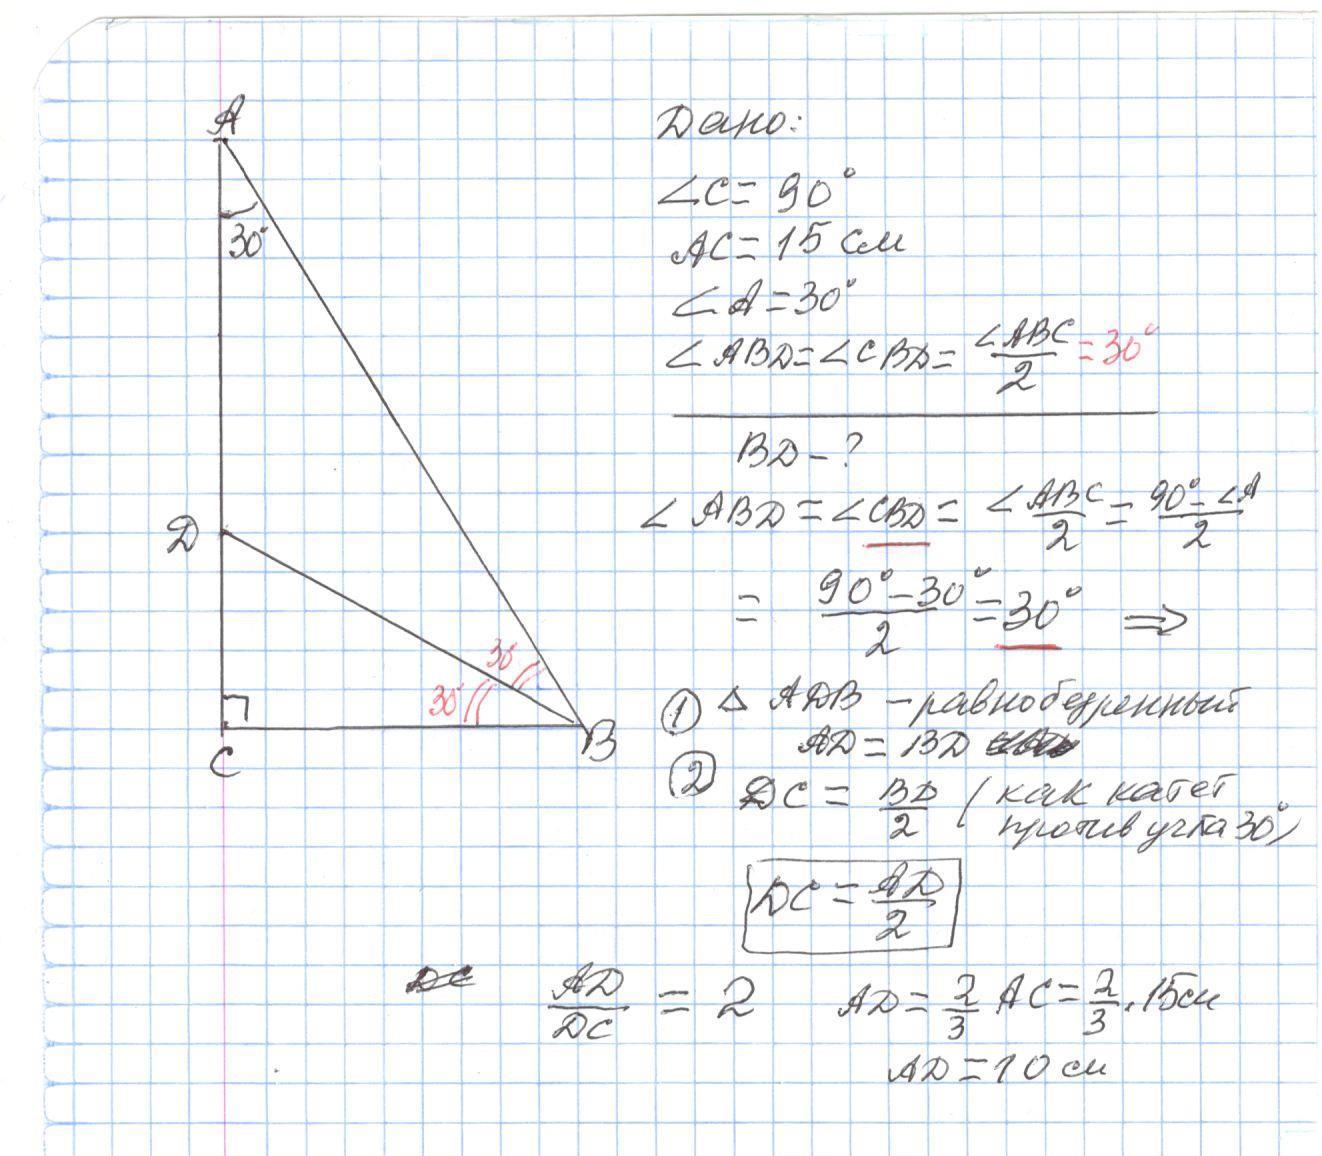 A
30°
D
30°
30°
C
B
Дано:
∠C = 90°
AC = 15 см
∠A = 30°
∠ABD = ∠CBD = ∠ABC/2 = 30°
BD - ?
∠ABD = ∠CBD = ∠ABC/2 = 90° - ∠A/2
= 90° - 30°/2 = 30° ⇒
① △ ADB - равнобедренный
AD = BD
② DC = BD/2 (как катет
против угла 30°)
DC = AD/2
DC AD/DC = 2 AD = 2/3 AC = 2/3 · 15 см
AD = 10 см